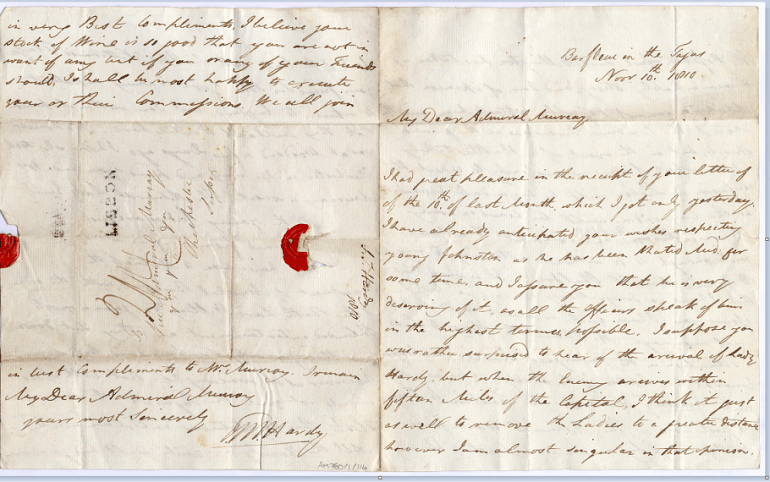 Barfleur in the Tajus
Novr 10th. 1810.
My Dear Admiral Murray
I had great pleasure in the receipt of your letter of
of the 10th. of last Month, which I got only yesterday.
I have already anticipated your wishes respecting
young Johnston as he has been Mid. for
some time, and I assure you that he is very
deserving of it, as all the officers speak of him
in the highest terms possible. I suppose you
was rather surprised to hear of the arrival of Lady
Hardy, but when the Enemy arrives within
fifteen Miles of the Capital, I think it just
as well to remove the Ladies to a greater distance
however I am almost singular in that opinion.
in very Best Compliments, I believe your
stock of Wine is so good that you are not in
want of any but if you or any of your Friends
should, I shall be most happy to execute
your or their Commissions. We all join
LISBON
Vice Admiral Murray
Chichester
Sussex
Hardy
in best Compliments to Mrs. Murray. I remain
My Dear Admiral Murray
yours most Sincerely
TMHardy